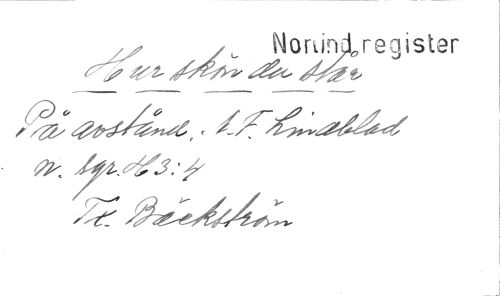 Norlind, register
Hur skön du står
På avstånd. A.F. Lindblad
n. sgr. H 3:4
Tx. Bäckström